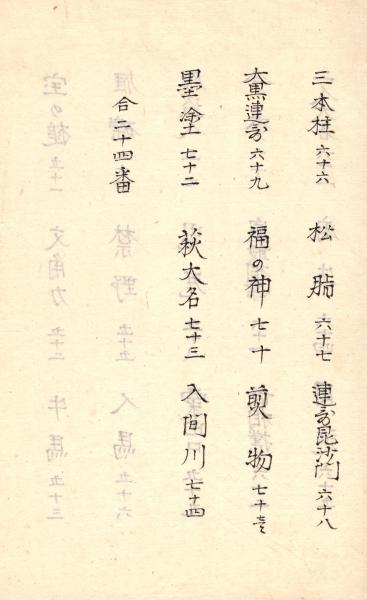 三本柱 六十六 松脂 六十七 連哥毘沙門 六十八
大黒連哥 六十九 福の神 七十 煎物 七十壱
墨塗 七十二 萩大名 七十三 入間川 七十四
合二十四番